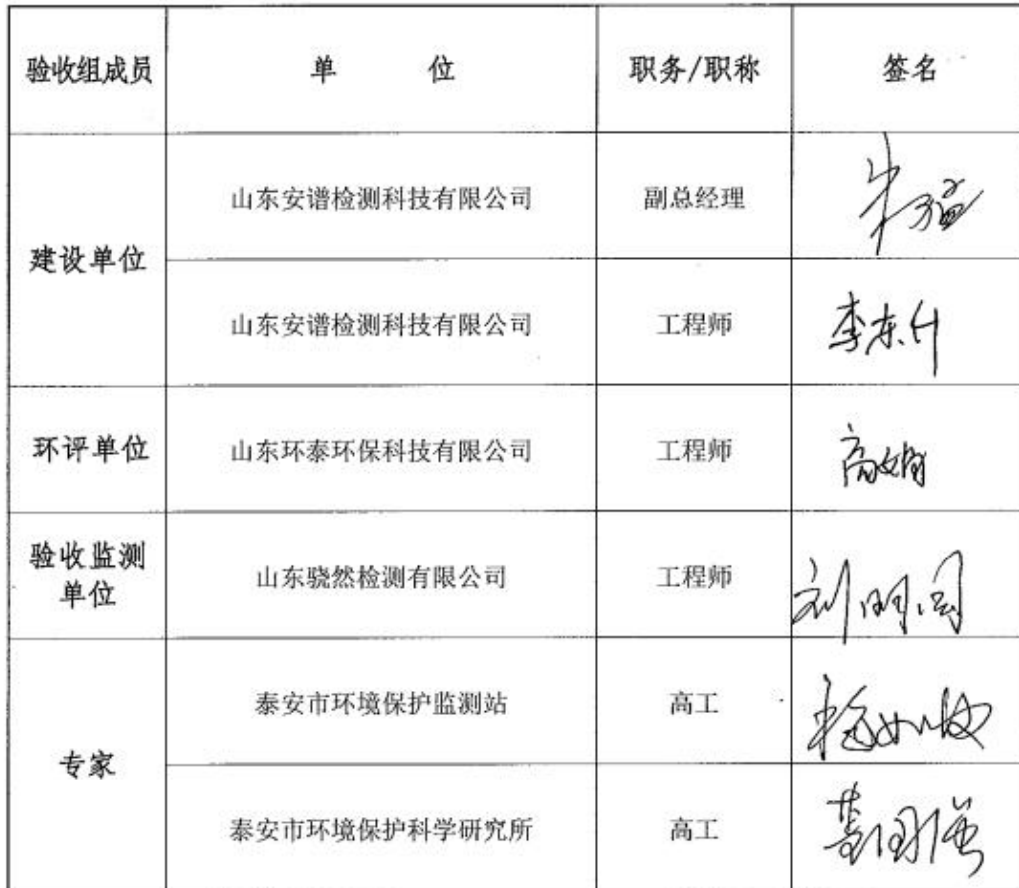 验收组成员 单 位 职务/职称 签名
建设单位 山东安谱检测科技有限公司 副总经理
山东安谱检测科技有限公司 工程师 李东升
环评单位 山东环泰环保科技有限公司 工程师 高娟
验收监测
单位 山东骁然检测有限公司 工程师 刘明阁
专家 泰安市环境保护监测站 高工
泰安市环境保护科学研究所 高工